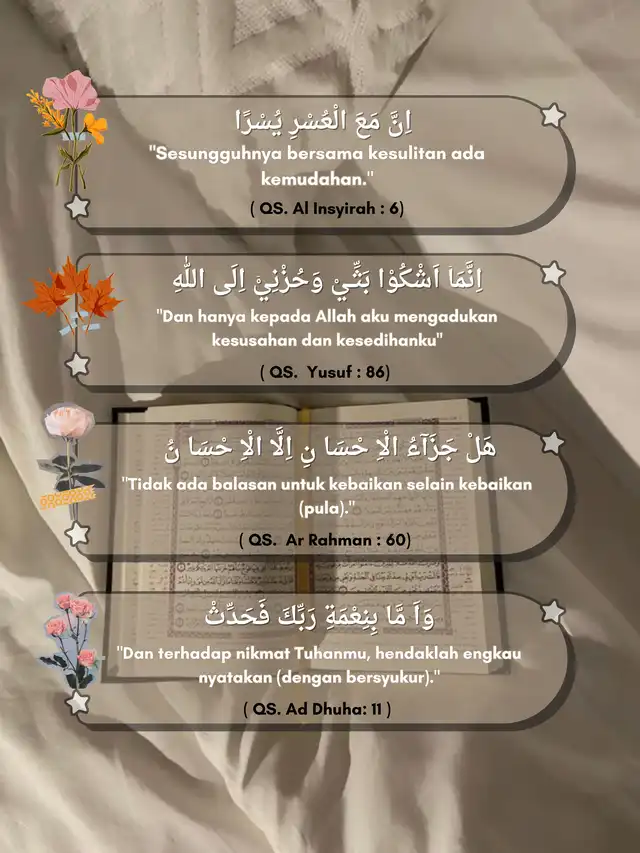 اِنَّ مَعَ الْعُسْرِ يُسْرًا
"Sesungguhnya bersama kesulitan ada
kemudahan."
( QS. Al Insyirah : 6)
اِنَّمَاۤ اَشْكُوْا بَثِّيْ وَحُزْنِيْۤ اِلَى اللّٰهِ
"Dan hanya kepada Allah aku mengadukan
kesusahan dan kesedihanku"
( QS. Yusuf : 86)
هَلْ جَزَآءُ الْاِ حْسَا نِ اِلَّا الْاِ حْسَا نُ
"Tidak ada balasan untuk kebaikan selain kebaikan
(pula)."
( QS. Ar Rahman : 60)
وَاَ مَّا بِنِعْمَةِ رَبِّكَ فَحَدِّثْ
"Dan terhadap nikmat Tuhanmu, hendaklah engkau
nyatakan (dengan bersyukur)."
( QS. Ad Dhuha: 11 )